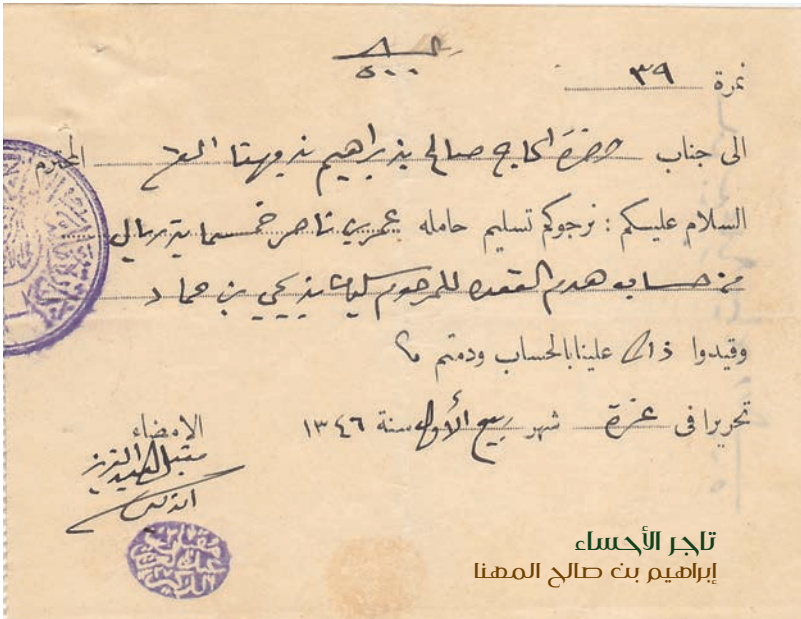 ٥٠٠
نمرة ٣٩
الى جناب حضرة الحاج صالح بن براهيم بن مهنا المحترم
السلام عليكم : نرجوكم تسليم حامله عمري ناصر خمسماية ريال
من حساب هدم للمرحوم بن يحي بن حماد
وقيدوا ذالك علينا بالحساب ودمتم
تحريرا في غرة شهر ربيع الأول سنة ١٣٤٦
الإمضاء
مقبل
تاجر الأحساء
إبراهيم بن صالح المهنا